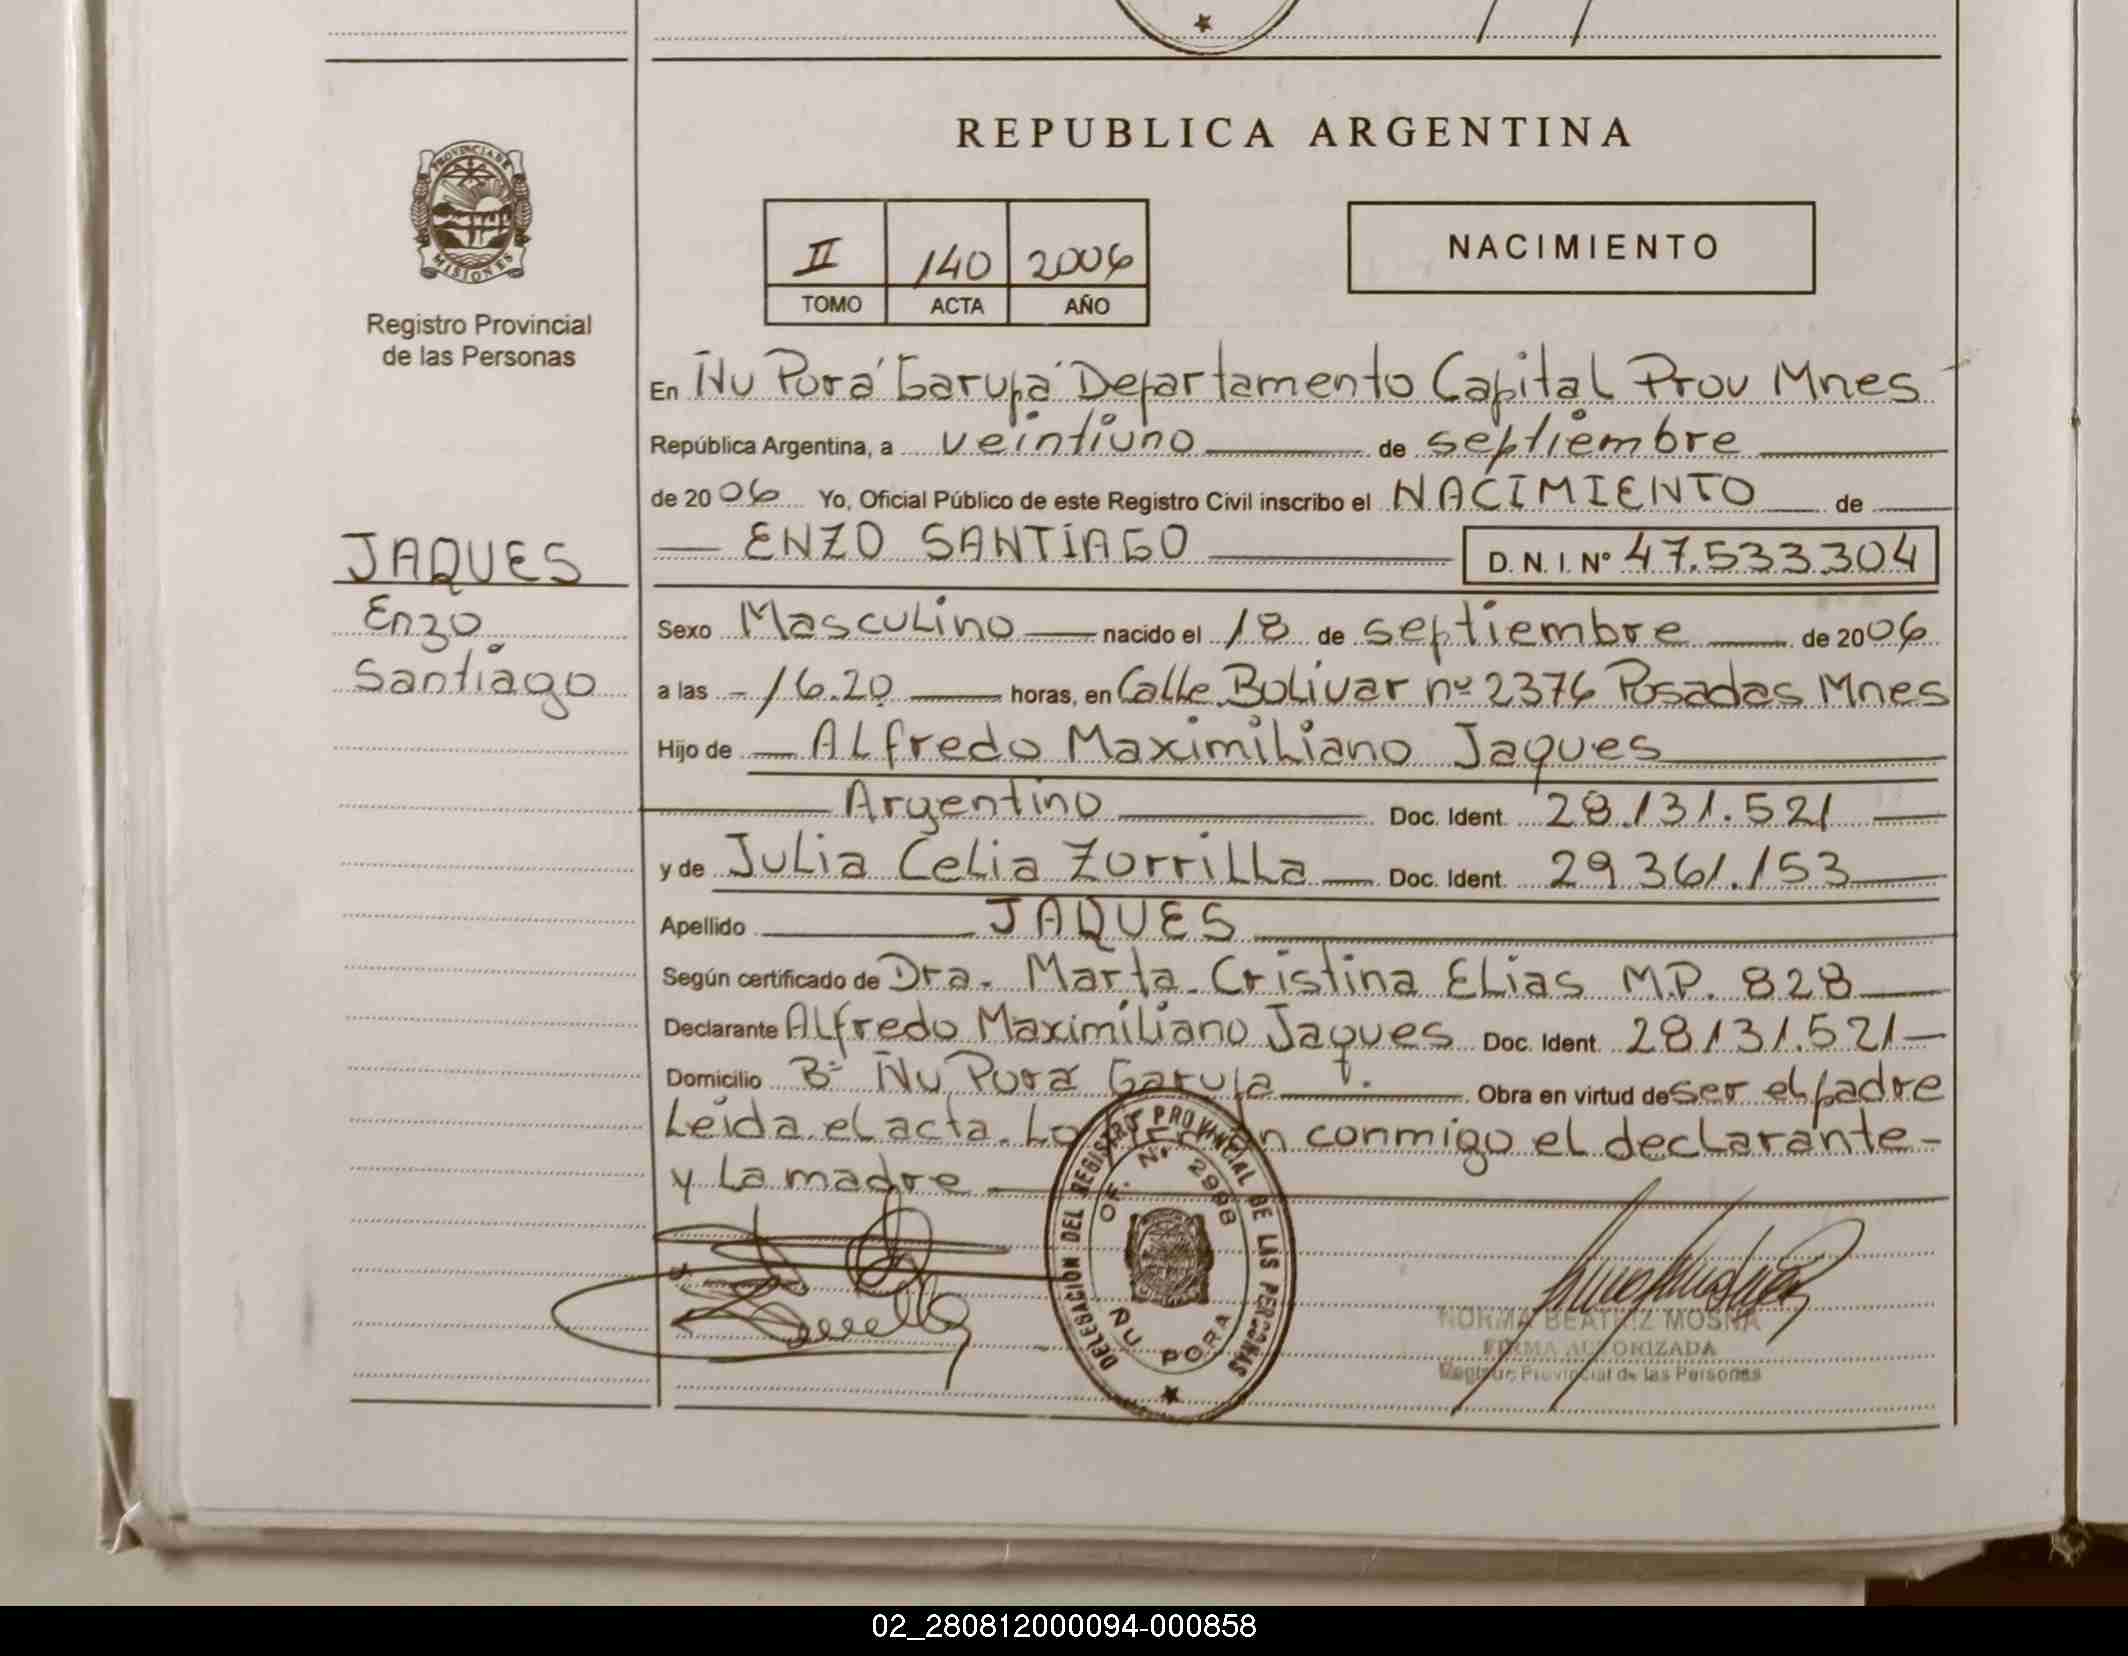 REPUBLICA ARGENTINA
PROVINCIA DE
MISIONES
Registro Provincial
de las Personas
II 140 2006
TOMO ACTA AÑO
NACIMIENTO
En Ñu Porá Garupá Departamento Capital Prov Mnes
República Argentina, a veintiuno de septiembre
de 2006 Yo, Oficial Público de este Registro Civil inscribo el NACIMIENTO de
JAQUES
Enzo
Santiago
ENZO SANTIAGO D. N. I. Nº 47.533.304
Sexo Masculino nacido el 18 de septiembre de 2006
a las - 16.20 horas, en Calle Bolivar nº 2376 Posadas Mnes
Hijo de Alfredo Maximiliano Jaques
Argentino Doc. Ident. 28.131.521
y de Julia Celia Zorrilla Doc. Ident. 29.361.153
Apellido JAQUES
Según certificado de Dra. Marta Cristina Elias M.P. 828
Declarante Alfredo Maximiliano Jaques Doc. Ident. 28.131.521
Domicilio Bº Ñu Pora Garupa Obra en virtud de ser el padre
Leida el acta. La conmigo el declarante
y la madre
DELEGACION DEL REGISTRO PROVINCIAL DE LAS PERSONAS
OF. Nº 2988
ÑU PORA
NORMA BEATRIZ MOSNA
FIRMA AUTORIZADA
Registro Provincial de las Personas
02_280812000094-000858